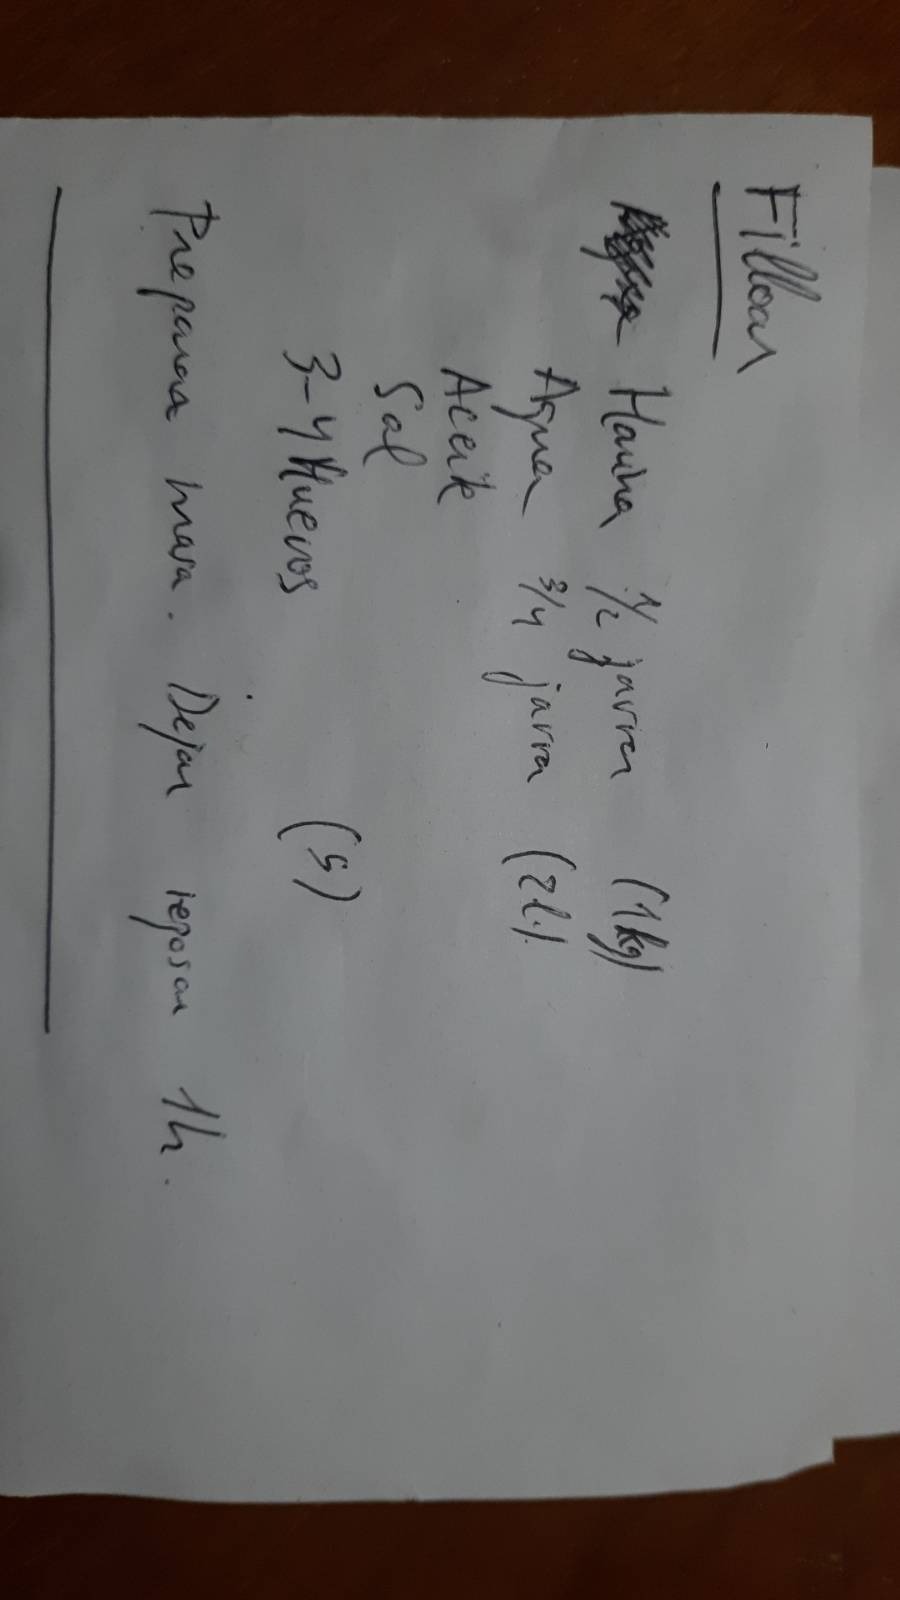 Filloas
Harina 1/2 jarra (1kg)
Agua 3/4 jarra (2l.)
Aceite
Sal
3-4 Huevos (5)
Preparar masa. Dejar reposar 1h.